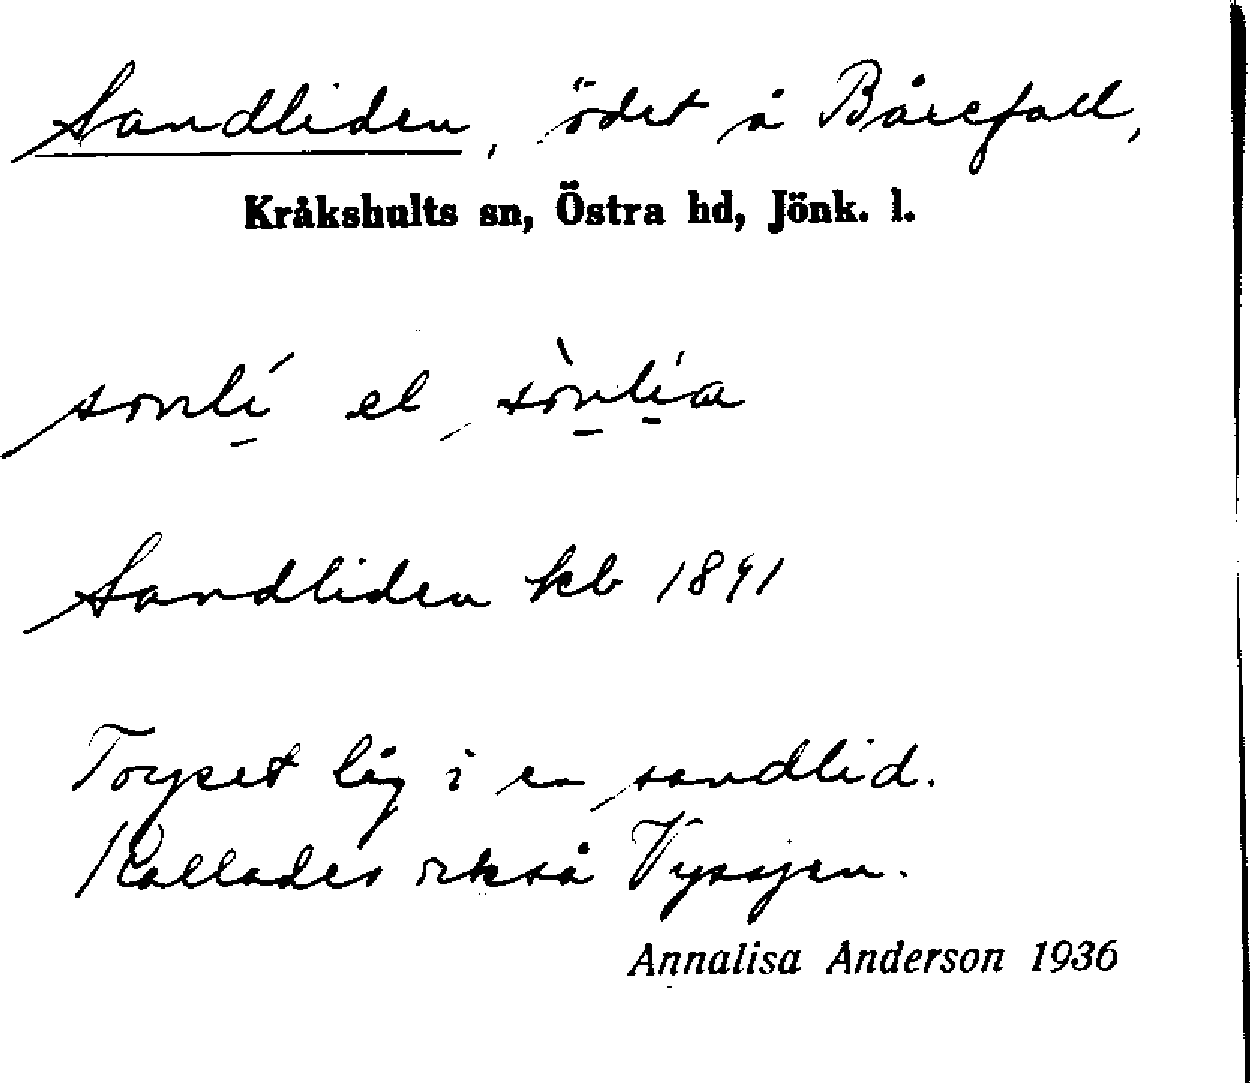 Sandliden, ödet å Bårefall,
Kråkshults sn, Östra hd, Jönk. l.
el
Sandliden kb 1891
Torpet låg i en sandlid.
Kallades också Vyssjen.
Annalisa Anderson 1936